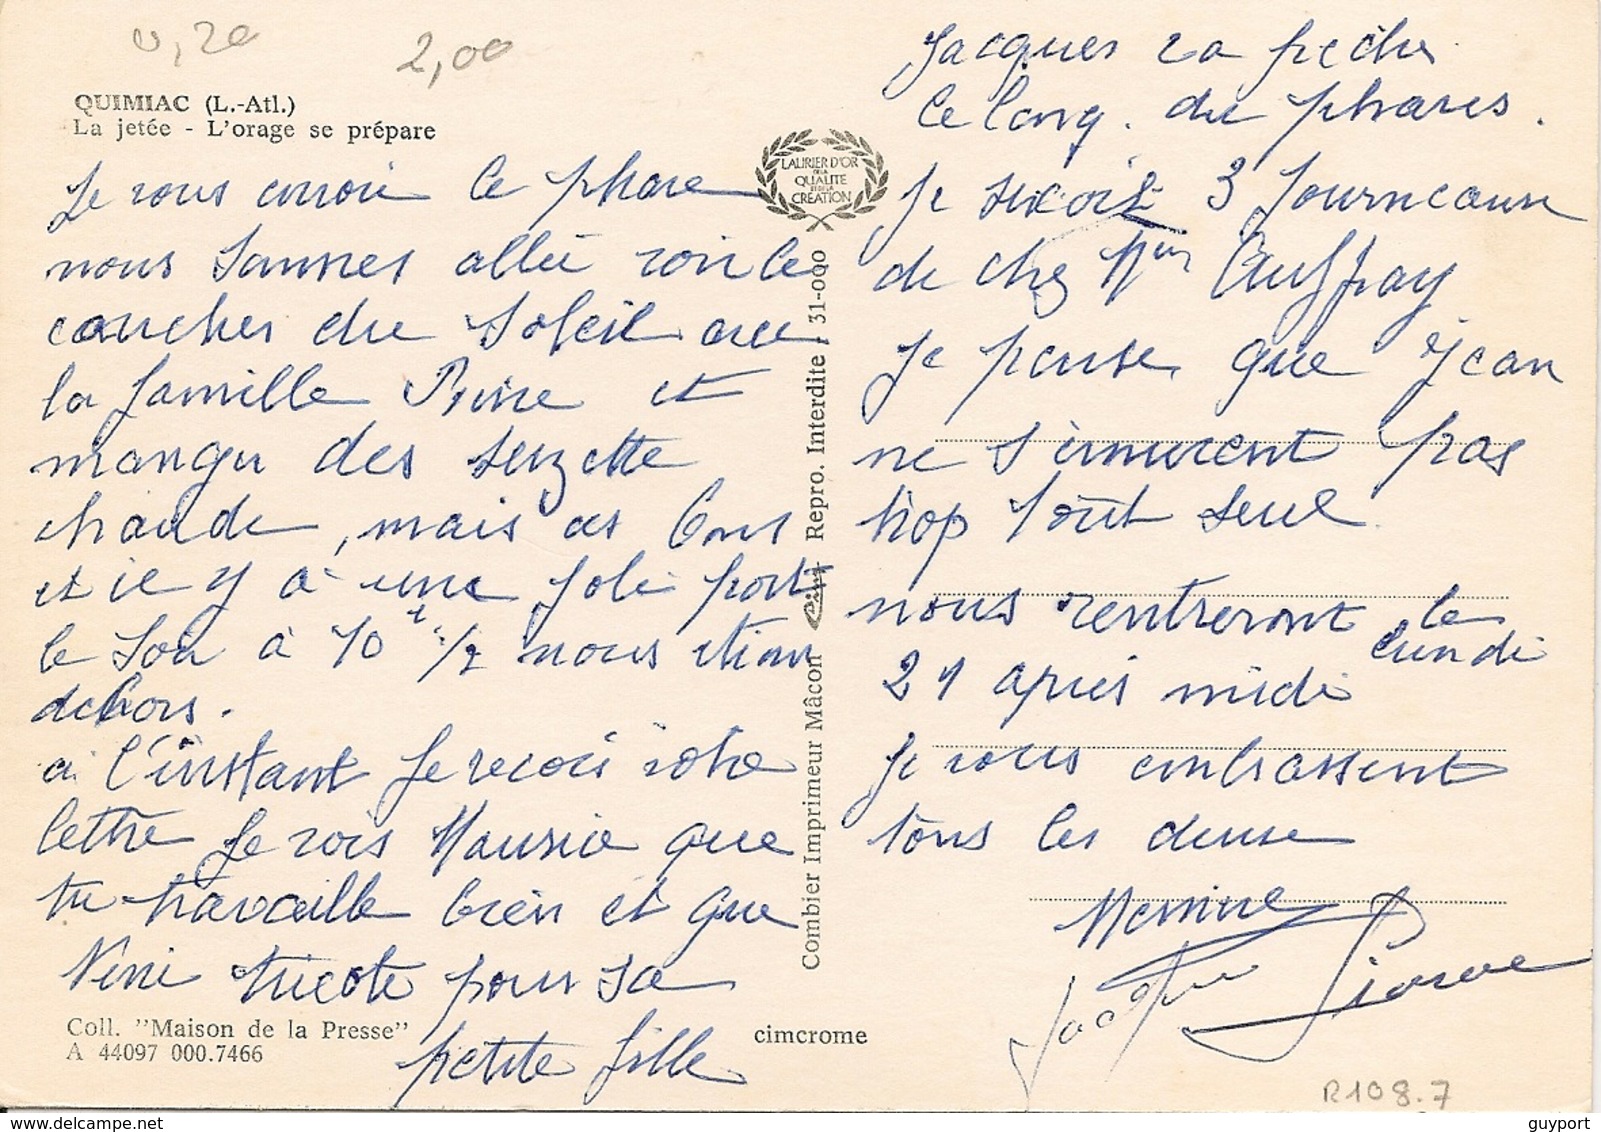 0,20
2,00
QUIMIAC (L.-Atl.)
La jetée - L'orage se prépare
Je vous envoie le phare
nous sommes allée voir le
coucher du soleil avec
la famille et
manger des
chaude, mais as bons
et il y à une joli port
le soir à 10 1/2 nous étions
dehors.
a l'instant Je recois votre
lettre Je vois Maurice que
tu travaille bien et que
Néni tricote pour sa
petite fille
Coll. "Maison de la Presse"
A 44097 000.7466
cimcrome
LAURIER D'OR
DE LA
QUALITE
ET DE LA
CREATION
Combier Imprimeur Mâcon
Repro. Interdite / 31-000
Jacques va pecher
le long. du phares.
Je recoit 3 Journeaux
de chez Auffray
Je pense que Jean
ne s'ennuient pas
trop tout seul
nous rentreront le
lundi
21 apres midi
Je vous embrassent
tous les deux
Jacques
R108.7
guyport